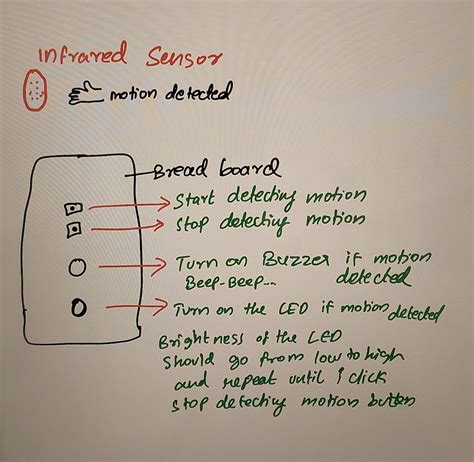 Infrared Sensor
motion detected
Bread board
Start detecting motion
Stop detecting motion
Turn on Buzzer if motion detected
Beep-Beep...
Turn on the LED if motion detected
Brightness of the LED
should go from low to high
and repeat until I click
stop detecting motion button